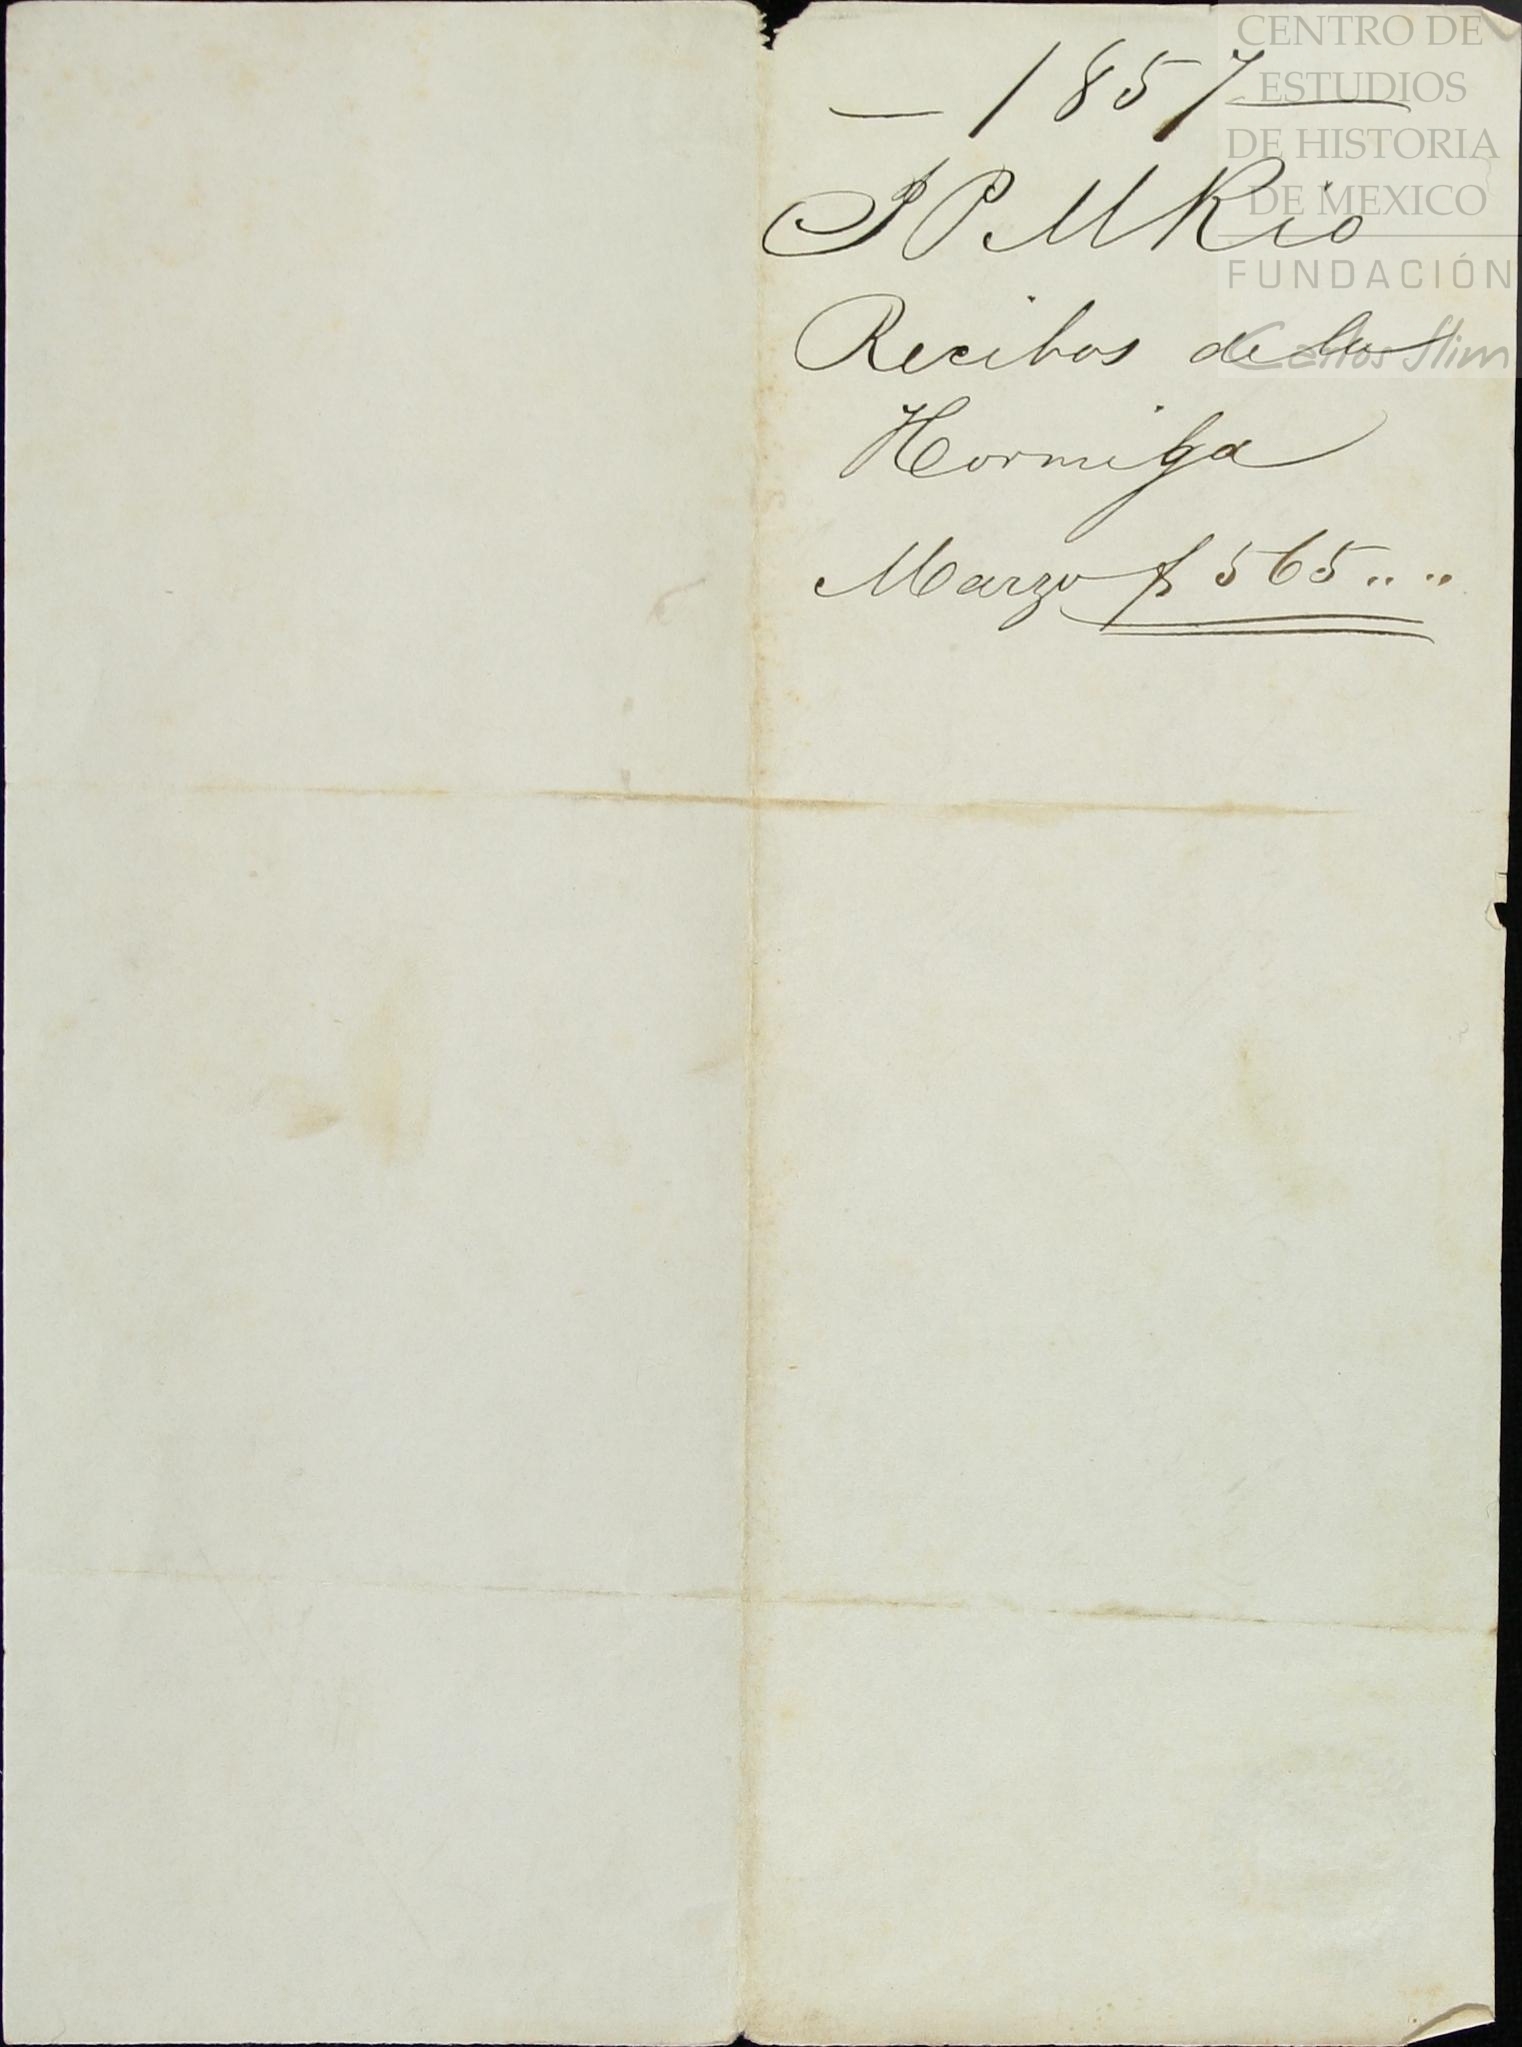 — 1857 —
J P M Rio
Recibos de la
Hormiga
Marzo $ 565 „ „
CENTRO DE
ESTUDIOS
DE HISTORIA
DE MEXICO
FUNDACIÓN
Carlos Slim